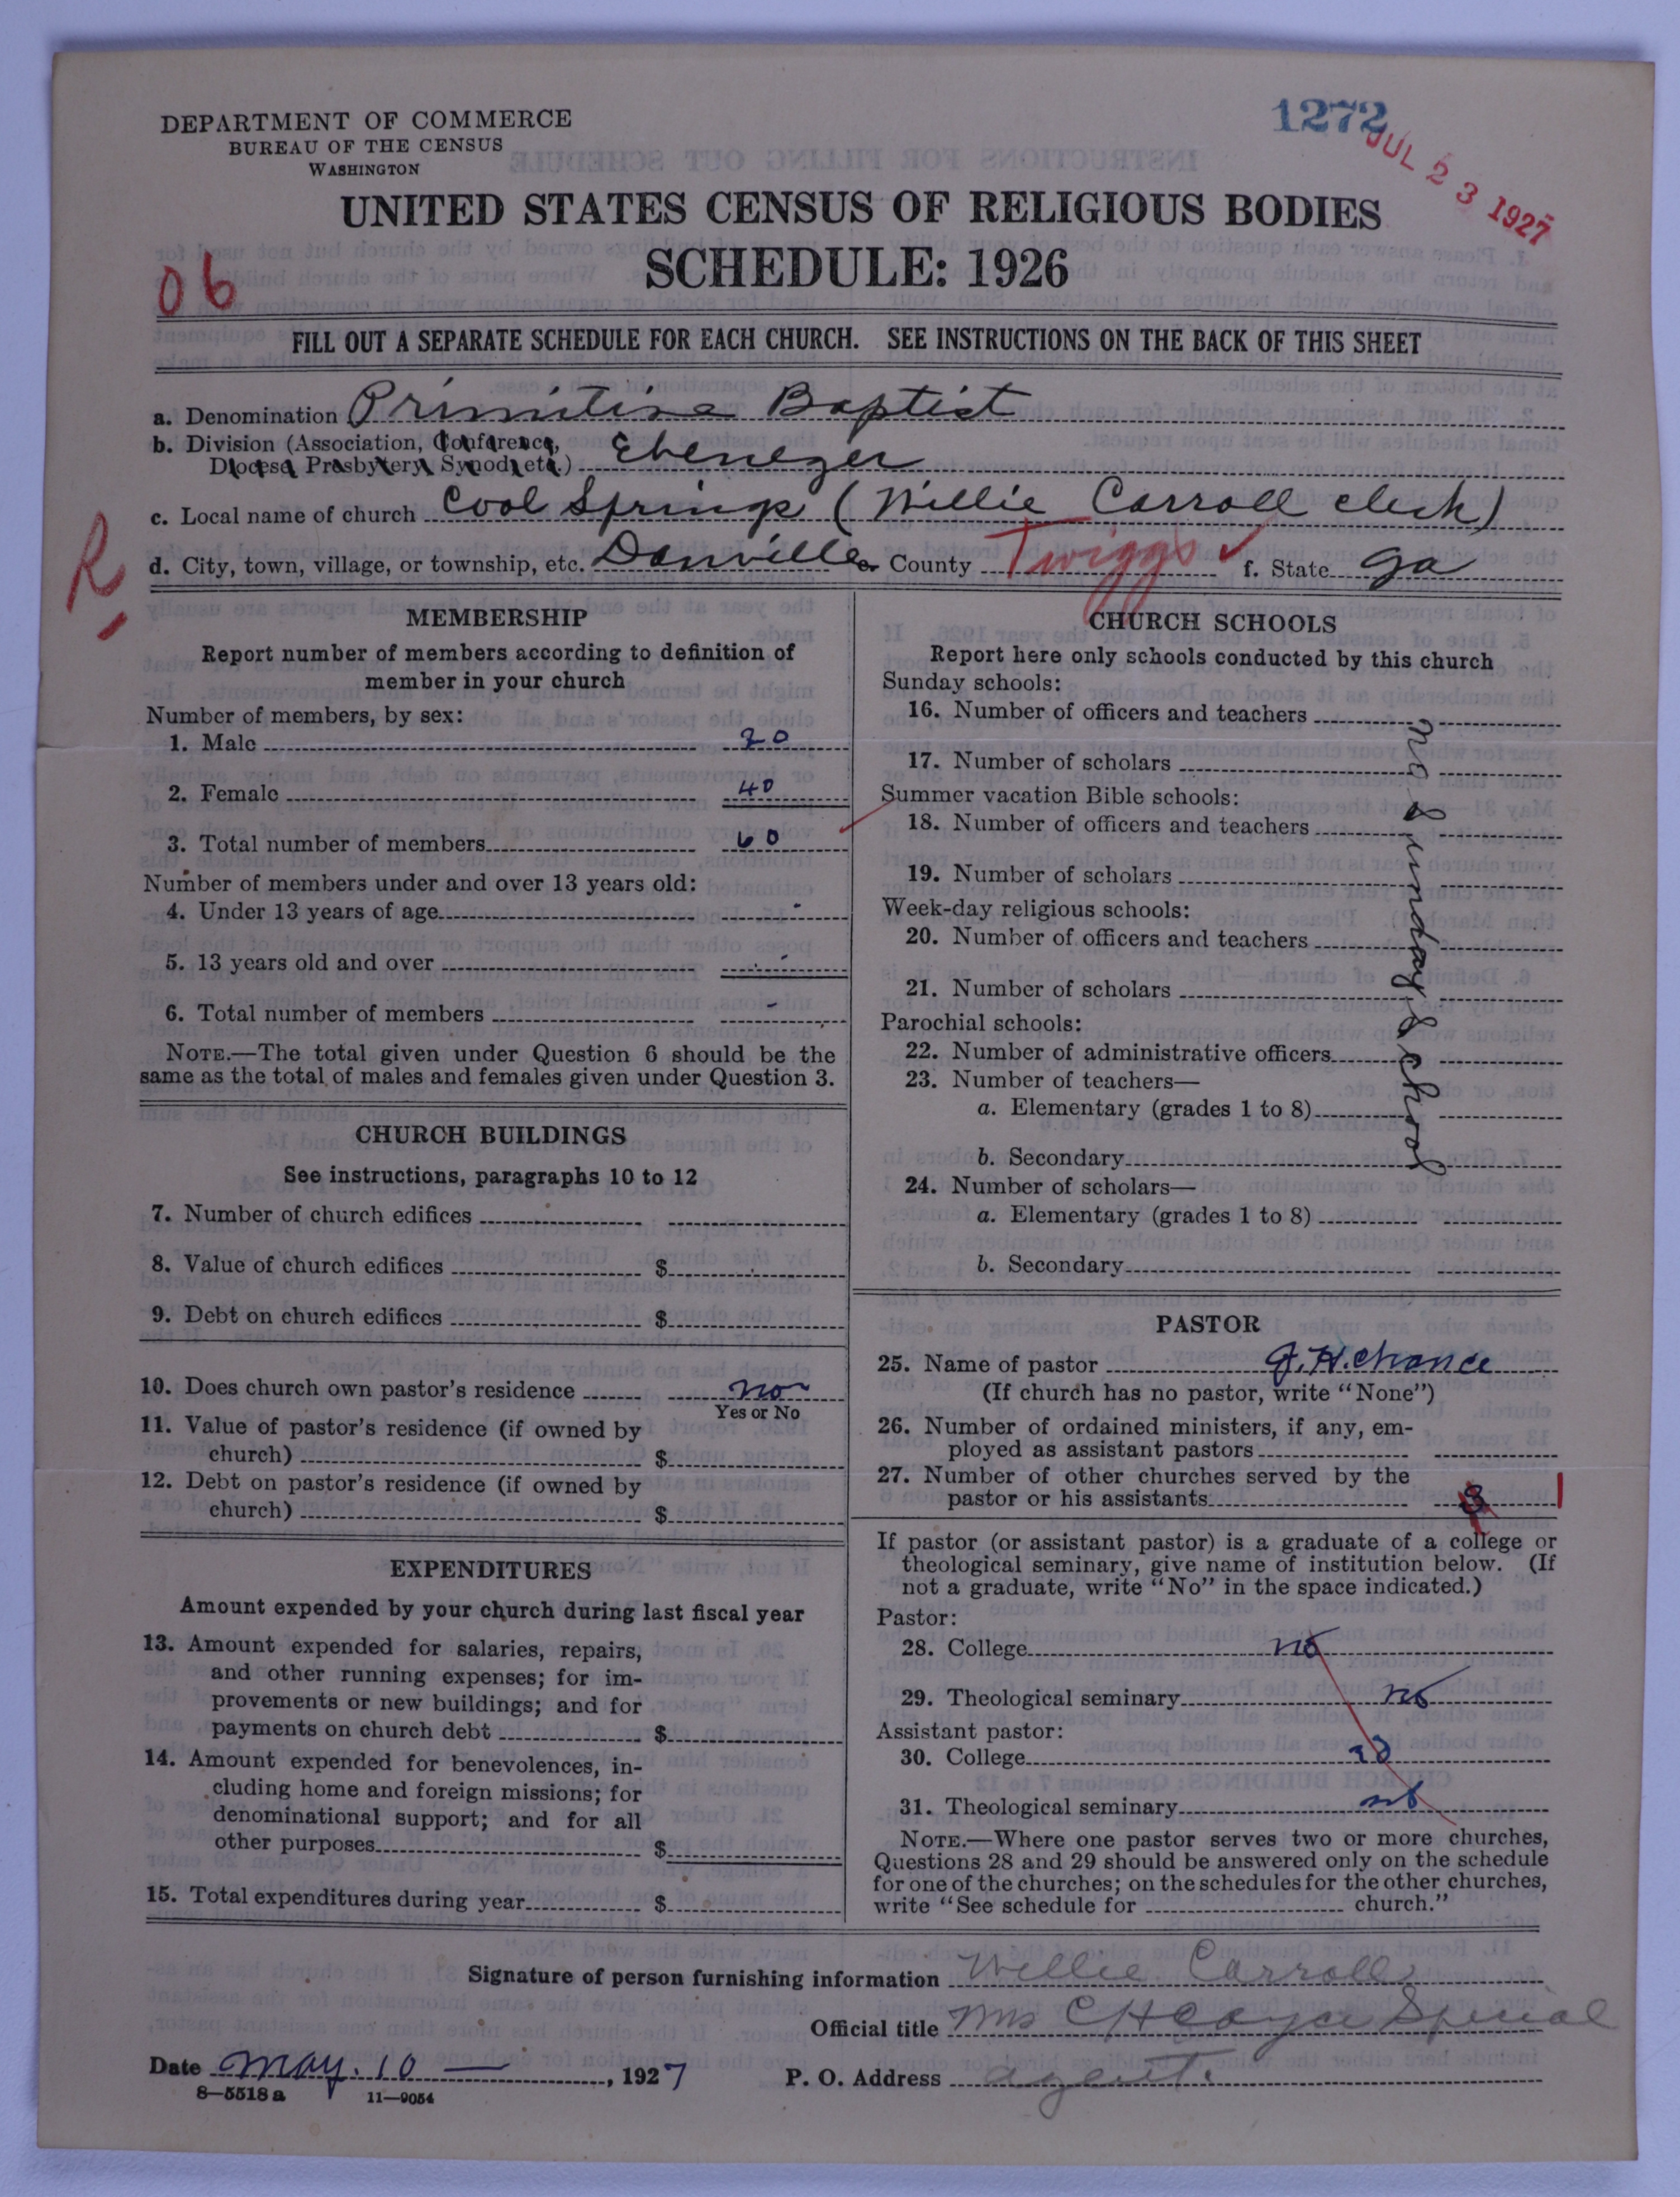 1272
JUL 23 1927
DEPARTMENT OF COMMERCE
BUREAU OF THE CENSUS
WASHINGTON
UNITED STATES CENSUS OF RELIGIOUS BODIES
SCHEDULE: 1926
06
FILL OUT A SEPARATE SCHEDULE FOR EACH CHURCH. SEE INSTRUCTIONS ON THE BACK OF THIS SHEET
a. Denomination Primitive Baptist
b. Division (Association, Conference,
Diocese, Presbytery, Synod, etc.) Ebenezer
c. Local name of church Cool Springs (Willie Carroll clerk)
R
d. City, town, village, or township, etc. Danville e. County Twiggs ✓ f. State Ga
MEMBERSHIP
Report number of members according to definition of
member in your church
Number of members, by sex:
1. Male 20
2. Female 40
3. Total number of members 60
Number of members under and over 13 years old:
4. Under 13 years of age -
5. 13 years old and over -
6. Total number of members -
NOTE.—The total given under Question 6 should be the
same as the total of males and females given under Question 3.
CHURCH BUILDINGS
See instructions, paragraphs 10 to 12
7. Number of church edifices
8. Value of church edifices $
9. Debt on church edifices $
10. Does church own pastor's residence no
Yes or No
11. Value of pastor's residence (if owned by
church) $
12. Debt on pastor's residence (if owned by
church) $
EXPENDITURES
Amount expended by your church during last fiscal year
13. Amount expended for salaries, repairs,
and other running expenses; for im-
provements or new buildings; and for
payments on church debt $
14. Amount expended for benevolences, in-
cluding home and foreign missions; for
denominational support; and for all
other purposes $
15. Total expenditures during year $
CHURCH SCHOOLS
Report here only schools conducted by this church
Sunday schools:
16. Number of officers and teachers
17. Number of scholars
Summer vacation Bible schools:
18. Number of officers and teachers
19. Number of scholars
Week-day religious schools:
20. Number of officers and teachers
21. Number of scholars
Parochial schools:
22. Number of administrative officers
23. Number of teachers—
a. Elementary (grades 1 to 8)
b. Secondary
24. Number of scholars—
a. Elementary (grades 1 to 8)
b. Secondary
no Sunday School
PASTOR
25. Name of pastor J. H. Chance
(If church has no pastor, write "None")
26. Number of ordained ministers, if any, em-
ployed as assistant pastors
27. Number of other churches served by the
pastor or his assistants
If pastor (or assistant pastor) is a graduate of a college or
theological seminary, give name of institution below. (If
not a graduate, write "No" in the space indicated.)
Pastor:
28. College no
29. Theological seminary no
Assistant pastor:
30. College no
31. Theological seminary no
NOTE.—Where one pastor serves two or more churches,
Questions 28 and 29 should be answered only on the schedule
for one of the churches; on the schedules for the other churches,
write "See schedule for church."
Signature of person furnishing information Willie Carroll
Official title Mrs C H Special
Date May. 10 — , 1927 P. O. Address agent.
8—5518 a 11—9054